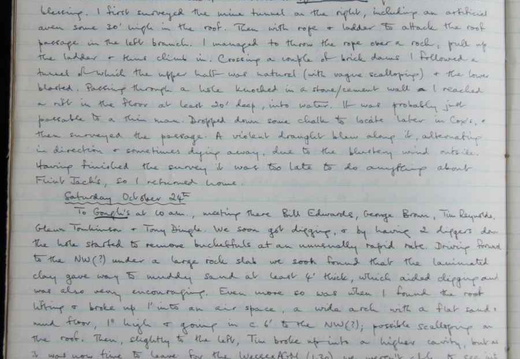 blessing. I first surveyed the mine tunnel on the right, including an artificial
aven some 30' high in the roof. Then with rope & ladder to attack the roof
passage in the left branch. I managed to throw the rope over a rock, pull up
the ladder & thus climb in. Crossing a couple of brick dams I followed a
tunnel of which the upper half was natural (with vague scalloping) & the lower
blasted. Passing through a hole knocked in a stone/cement wall I reached
a rift in the floor at least 20' deep, into water. It was probably just
passable to a thin man. Dropped down some chalk to locate later in Cow's, &
then surveyed the passage. A violent draught blew along it, alternating
in direction & sometimes dying away, due to the blustery wind outside.
Having finished the survey it was too late to do anything about
Flint Jack's, so I returned home.
Saturday October 24th
To Gough's at 10 am, meeting there Bill Edwards, George Brown, Tim Reynolds,
Glenn Tomkinson & Tony Dingle. We soon got digging, & by having 2 diggers down
the hole started to remove bucketfuls at an unusually rapid rate. Driving forward
to the NW(?) under a large rock slab we soon found that the laminated
clay gave way to muddy sand at least 4' thick, which aided digging and
was also very encouraging. Even more so was when I found the roof
lifting & broke up 1' into an air space, a wide arch with a flat sand &
mud floor, 1' high & going in c 6' to the NW(?), possible scalloping on
the roof. Then, slightly to the left, Tim broke into a higher cavity, but as
it was now time to leave for the Wessex AGM (1.30) we